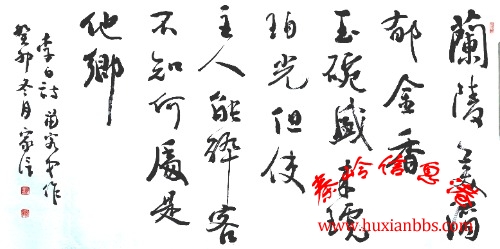 蘭陵美酒
郁金香
玉碗盛来琥
珀光但使
主人能醉客
不知何處是
他鄉
李白詩客中作
癸卯冬月家信
秦岭信息
www.huxianbbs.com